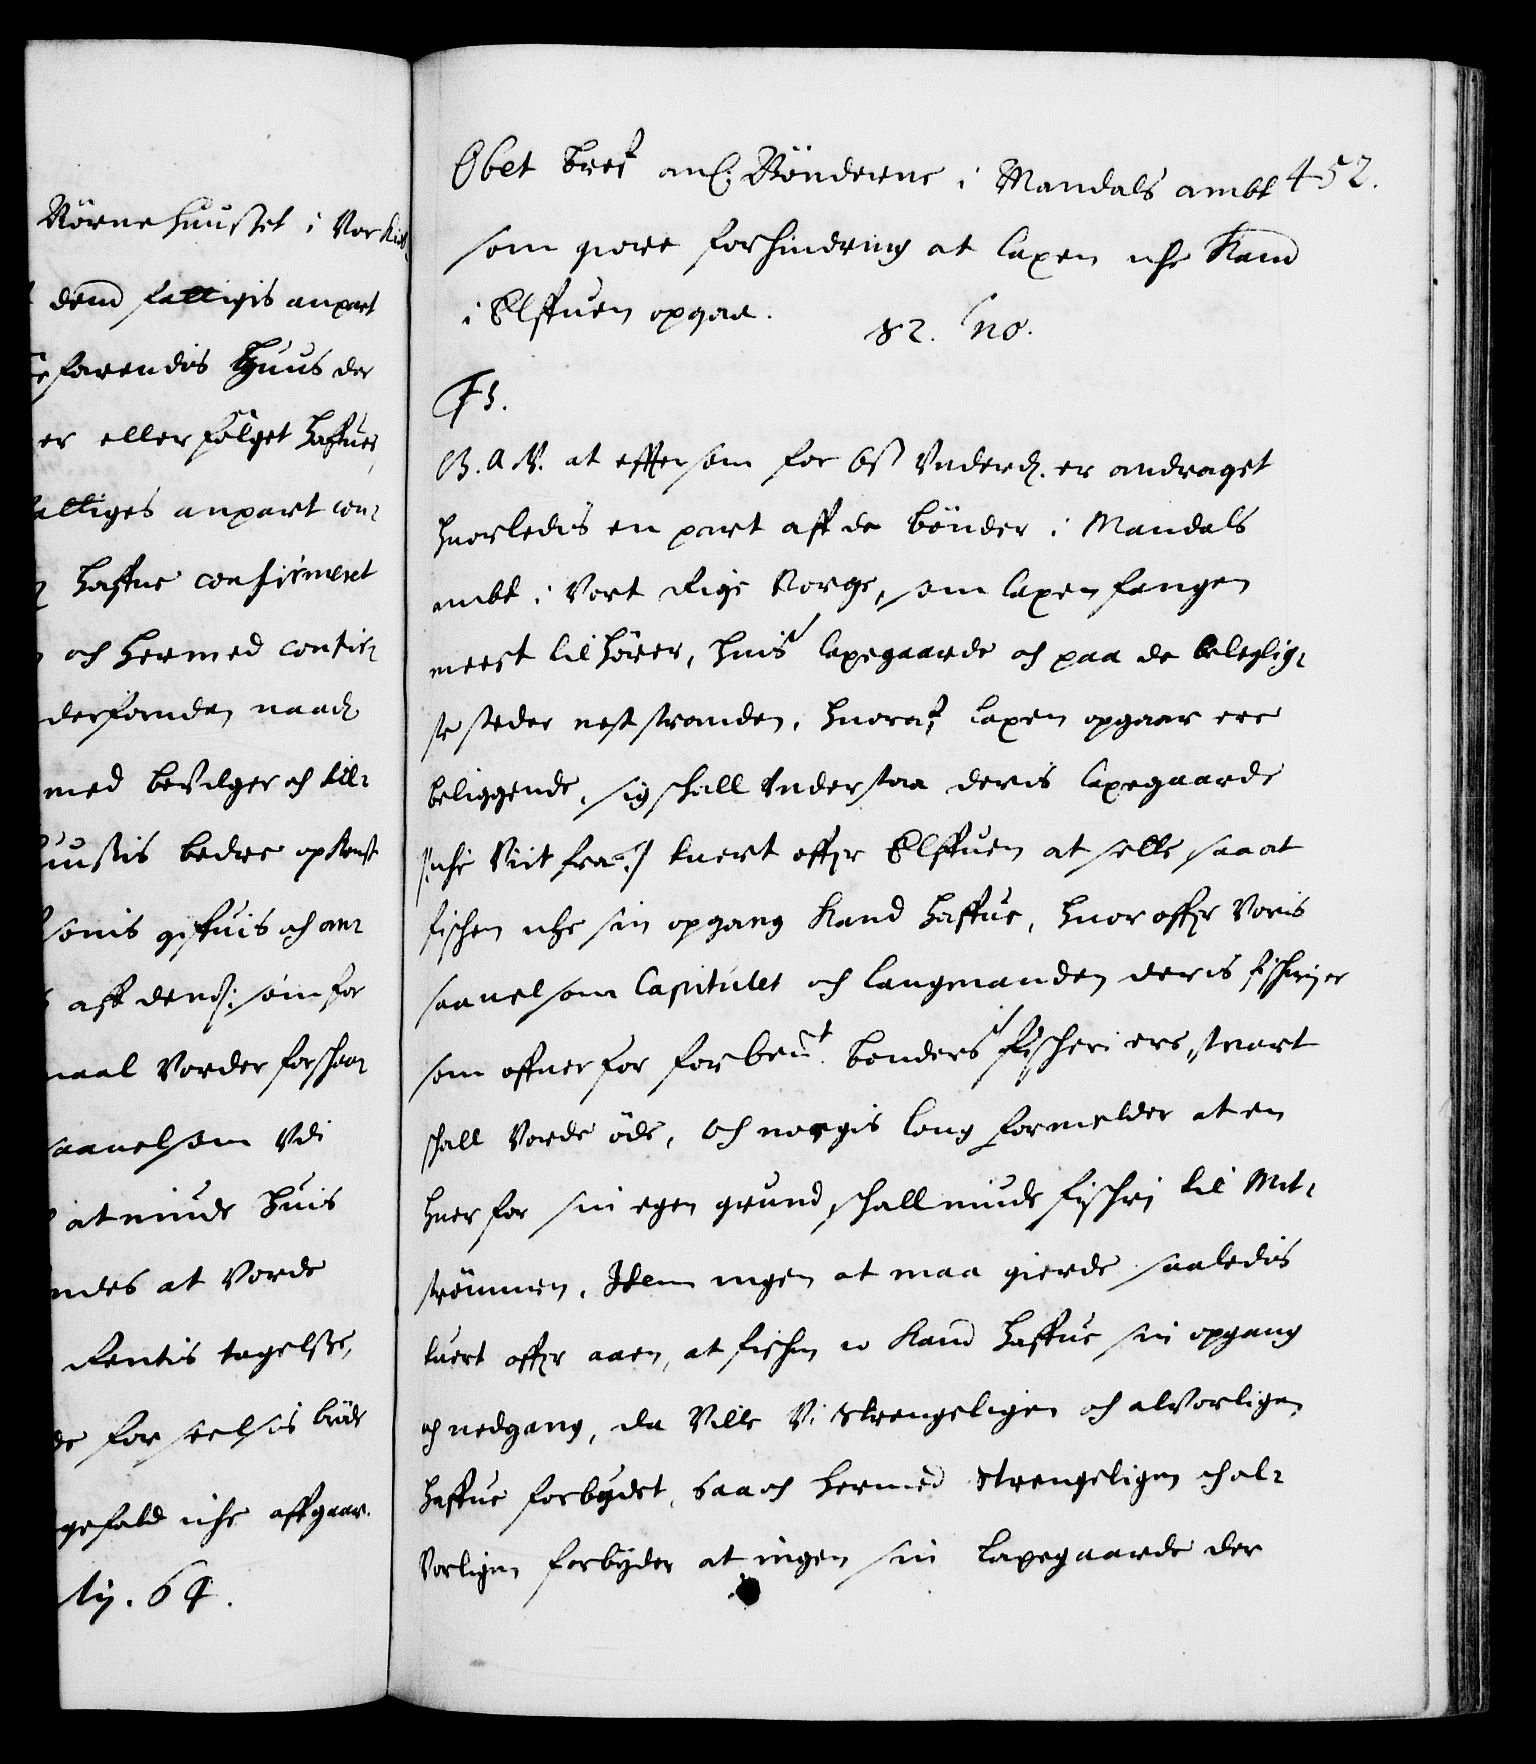 Nörnehuuset i Vor
dend fattigis anpart
farendis Huus der
er eller fölget haffuer,
attiges anpart con-
haffue confirmeret
och hermed confir-
derforuden naad.
med bevilger och till-
uusis bedre opkomst
sönis gifftuis och an-
aff dend: som for
aal Vorder forskaa-
saauelsom Vdi
at niude huis
ndes at Vorde
Rentis tagelse,
de for seelsis bröde
gefald iche affgaar.
ty. 64.
Obet bref anl: Bönderne i Mandals ambt 452.
som giöre forhindring at laxen iche Kand
i Elffuen opgaa.
82. no.
F3.
G. A. V. at effter som for oss Vnderd. er andraget
huorledis en part aff de bönder i Mandals
ambt i Vort Rige Norge, som laxen fangen
meest til hörer, huis laxegaarde och paa de beleylig-
ste steder nest stranden, huoraf laxen opgaar ere
beliggende, sig skall Vnderstaa deris laxegaarde
/:iche Viit fra:/ tuert offr Elffuen at sette saa at
fischen iche sin opgang Kand haffue, huor offr Voris
saauelsom Capitulet och laugmanden deris fischerier
som offuer for forbent bönders fischeri ere, snart
skall Vorde öde, och norgis loug formelder at en
huer for sin egen grund skall niude fischeri til Mit-
strömmen, Item ingen at maa gierde saaledis
tuert offr aaen, at fischen io Kand haffue sin opgang
och nedgang, da Ville Vi strengeligen och alvorligen
haffue forbydet, saa och hermed strengeligen och al-
vorligen forbyder at ingen sin laxegaarde der